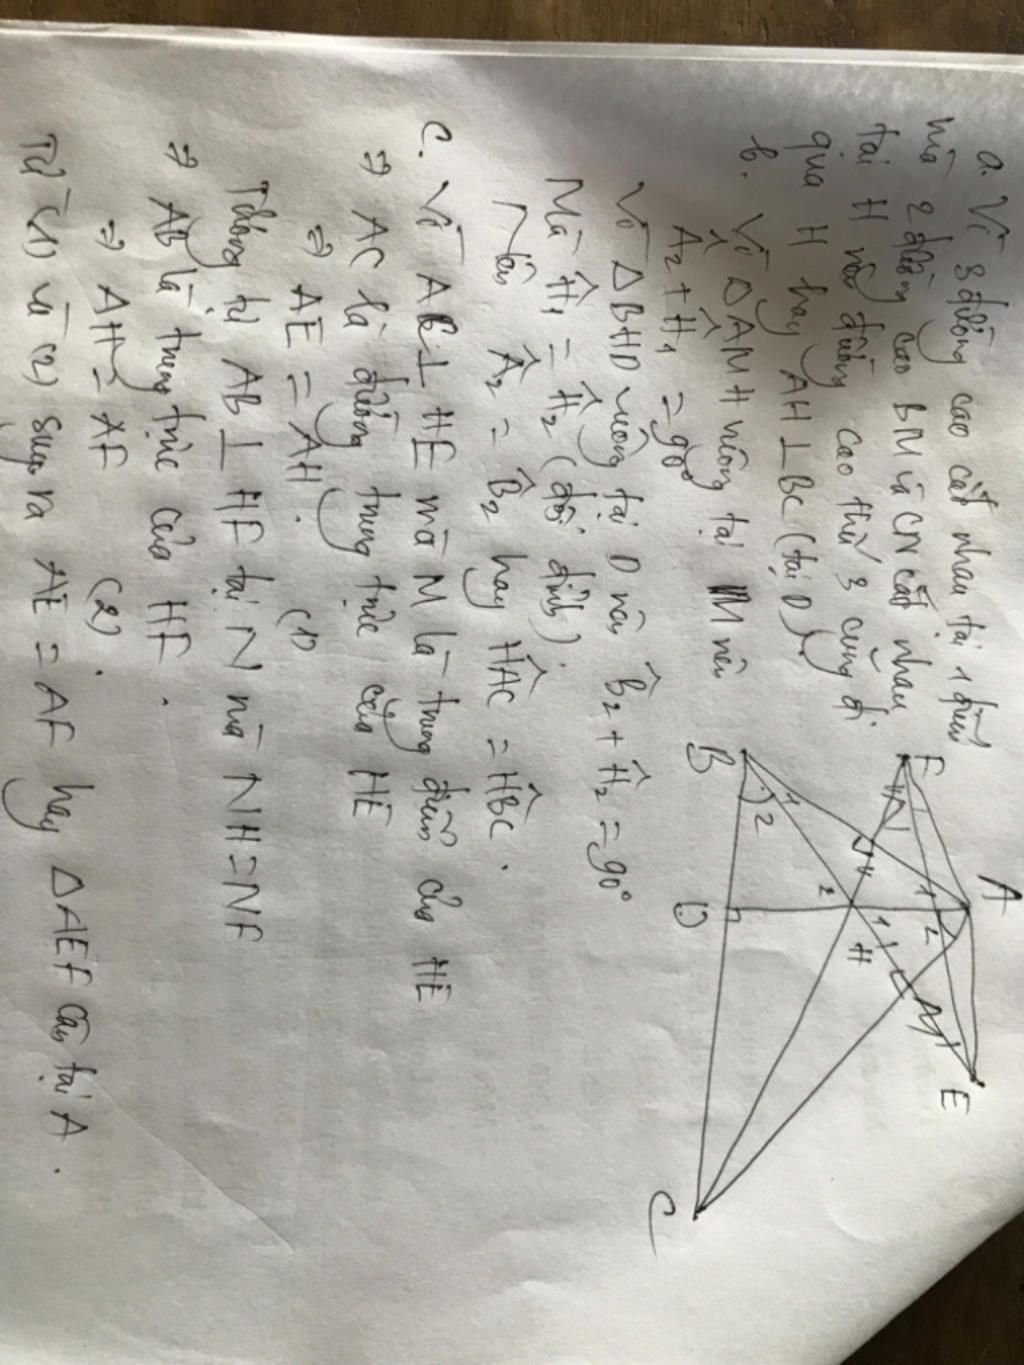 a. Vì 3 đường cao cắt nhau tại 1 điểm
mà 2 đường cao BM và CN cắt nhau
tại H nên đường cao thứ 3 cũng đi
qua H hay AH ⊥ BC (tại D)
b. Vì ΔAMH vuông tại M nên
Â₂ + Ĥ₁ = 90°
Vì ΔBHD vuông tại D nên B̂₂ + Ĥ₂ = 90°
Mà Ĥ₁ = Ĥ₂ (đối đỉnh).
Nên Â₂ = B̂₂ hay HÂC = HB̂C.
c. Vì AC ⊥ HE mà M là trung điểm của HE
⇒ AC là đường trung trực của HE
⇒ AE = AH. (1)
Tương tự AB ⊥ HF tại N mà NH = NF
⇒ AB là trung trực của HF.
⇒ AH = AF (2).
Từ (1) và (2) suy ra AE = AF hay ΔAEF cân tại A.
A
F
E
N
1
2
1
H
M
2
1
2
B
D
C